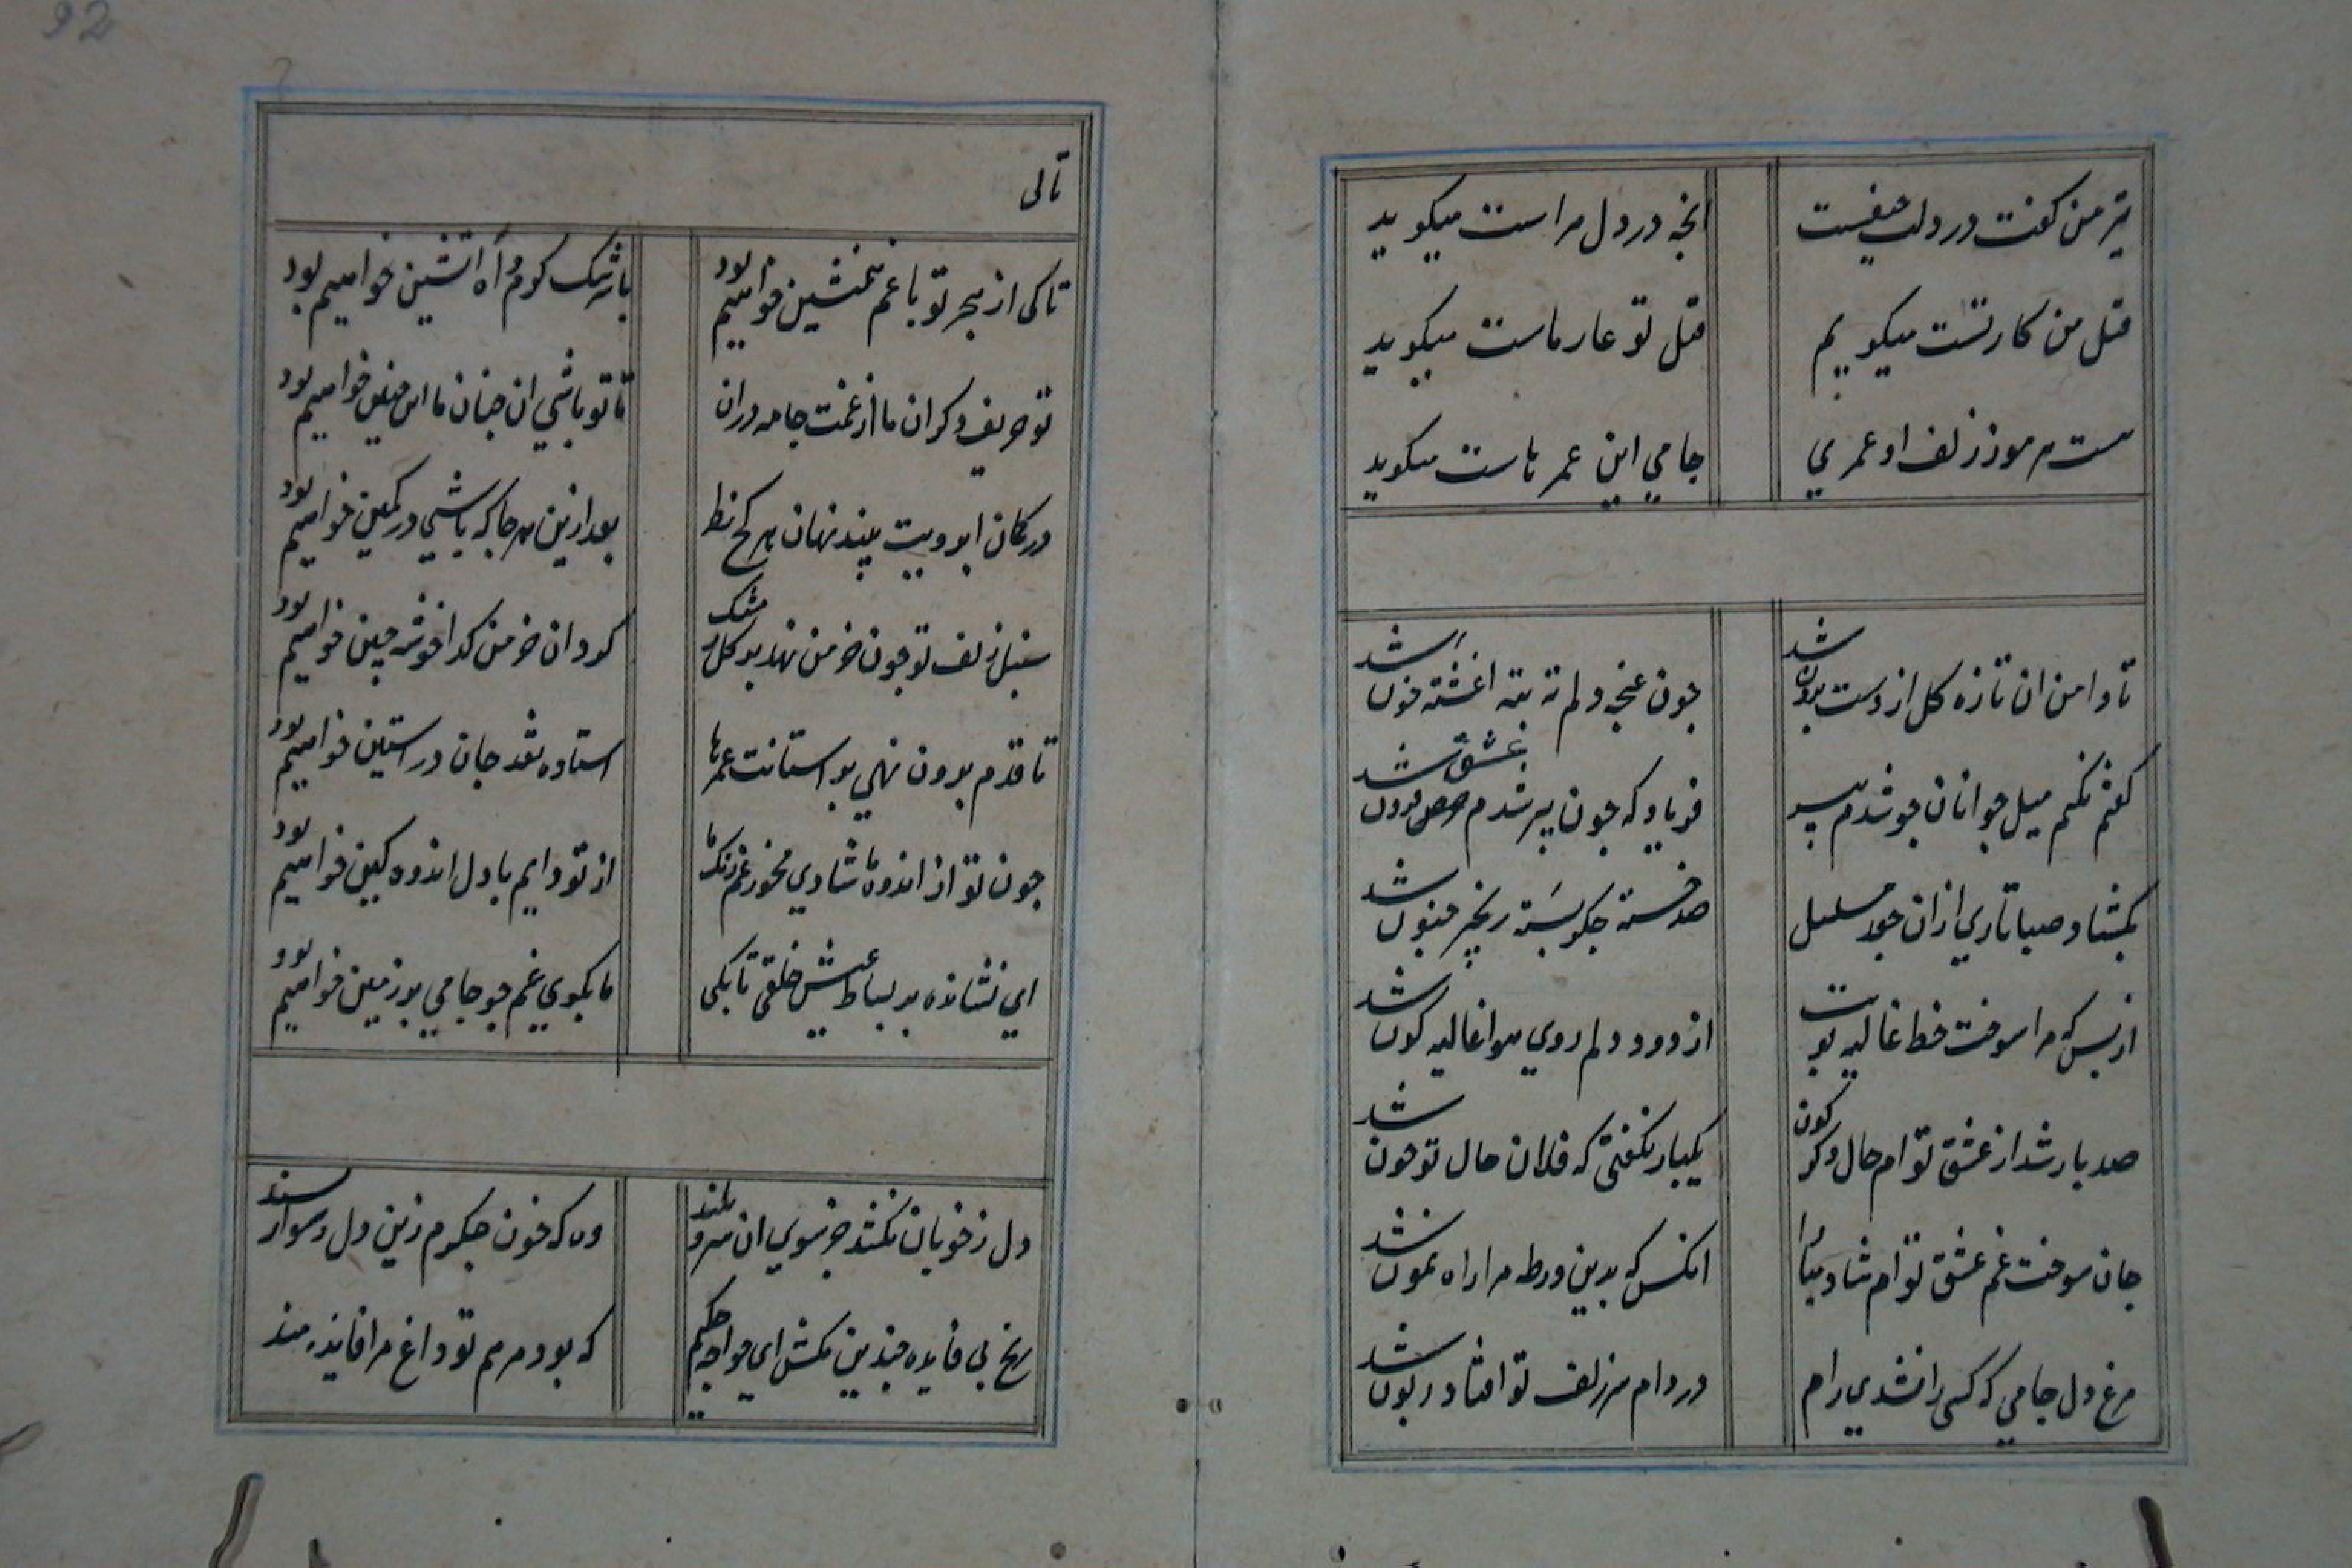 92
تیر من کفت در دلت حیفست
انجه در دل مراست میکوید
قتل من کار تست میکویم
قتل تو عار ماست میکوید
هست هر مو ز زلف او عمری
جامی این عمرهاست میکوید
تا دامن ان تازه کل از دست برون شد
جون غنجه دلم ته بته اغشته خون شد
کفتم نکنم میل جوانان جو شدم پیر
فریاد که جون پیر شدم حرص فزون شد
بکشاد صبا تاری ازان جعد مسلسل
صد خسته جکر بسته زنجیر جنون شد
از بس که مرا سوخت خط غالیه بویت
از دود دلم روی هوا غالیه کون شد
صد بار شد از عشق توام حال دکرکون
یکبار نکفتی که فلان حال تو جون شد
جان سوخت غم عشق توام شاد مبادا
انکس که بدین ورطه مرا راه نمون شد
مرغ دل جامی که کسی را نشدی رام
در دام سر زلف تو افتاد زبون شد
تالی
تا کی از هجر تو با غم همنشین خواهیم بود
با سرشک کرم و اه اتشین خواهیم بود
تو حریف دکران ما از غمت جامه دران
تا تو باشی ان جنان ما این جنین خواهیم بود
در کمان ابرویت بیند نهان هر کج نظر
بعد ازین هر جا که باشی در کمین خواهیم بود
سنبل زلف تو جون خرمن نهد بر کل مشک
کرد ان خرمن کدا خوشه جین خواهیم بود
تا قدم برون نهی بر استانت عمرها
استاده نقد جان در استین خواهیم بود
جون تو از اندوه ما شادی مخور غم زنکه ما
از تو دایم با دل اندوهکین خواهیم بود
ای نشانده بر بساط عیش خلقی تا بکی
ما بکوی غم جو جامی بر زمین خواهیم بود
دل ز خوبان نکشد جز سوی ان سرو بلند
وه که خون جکرم زین دل دسوار پسند
رنج بی فایده جندین مکش ای خواجه حکیم
که بود مرهم تو داغ مرا فایده مند